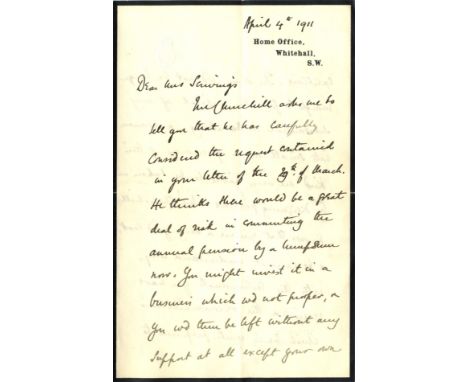 April 4th 1911
Home Office,
Whitehall,
S.W.
Dear Mrs Scrivings
Mr Churchill asks me to
tell you that he has carefully
considered the request contained
in your letter of the 29th of March.
He thinks there would be a great
deal of risk in commuting the
annual pension by a lump sum
now. You might invest it in a
business which wd not prosper, &
you wd then be left without any
support at all except your own